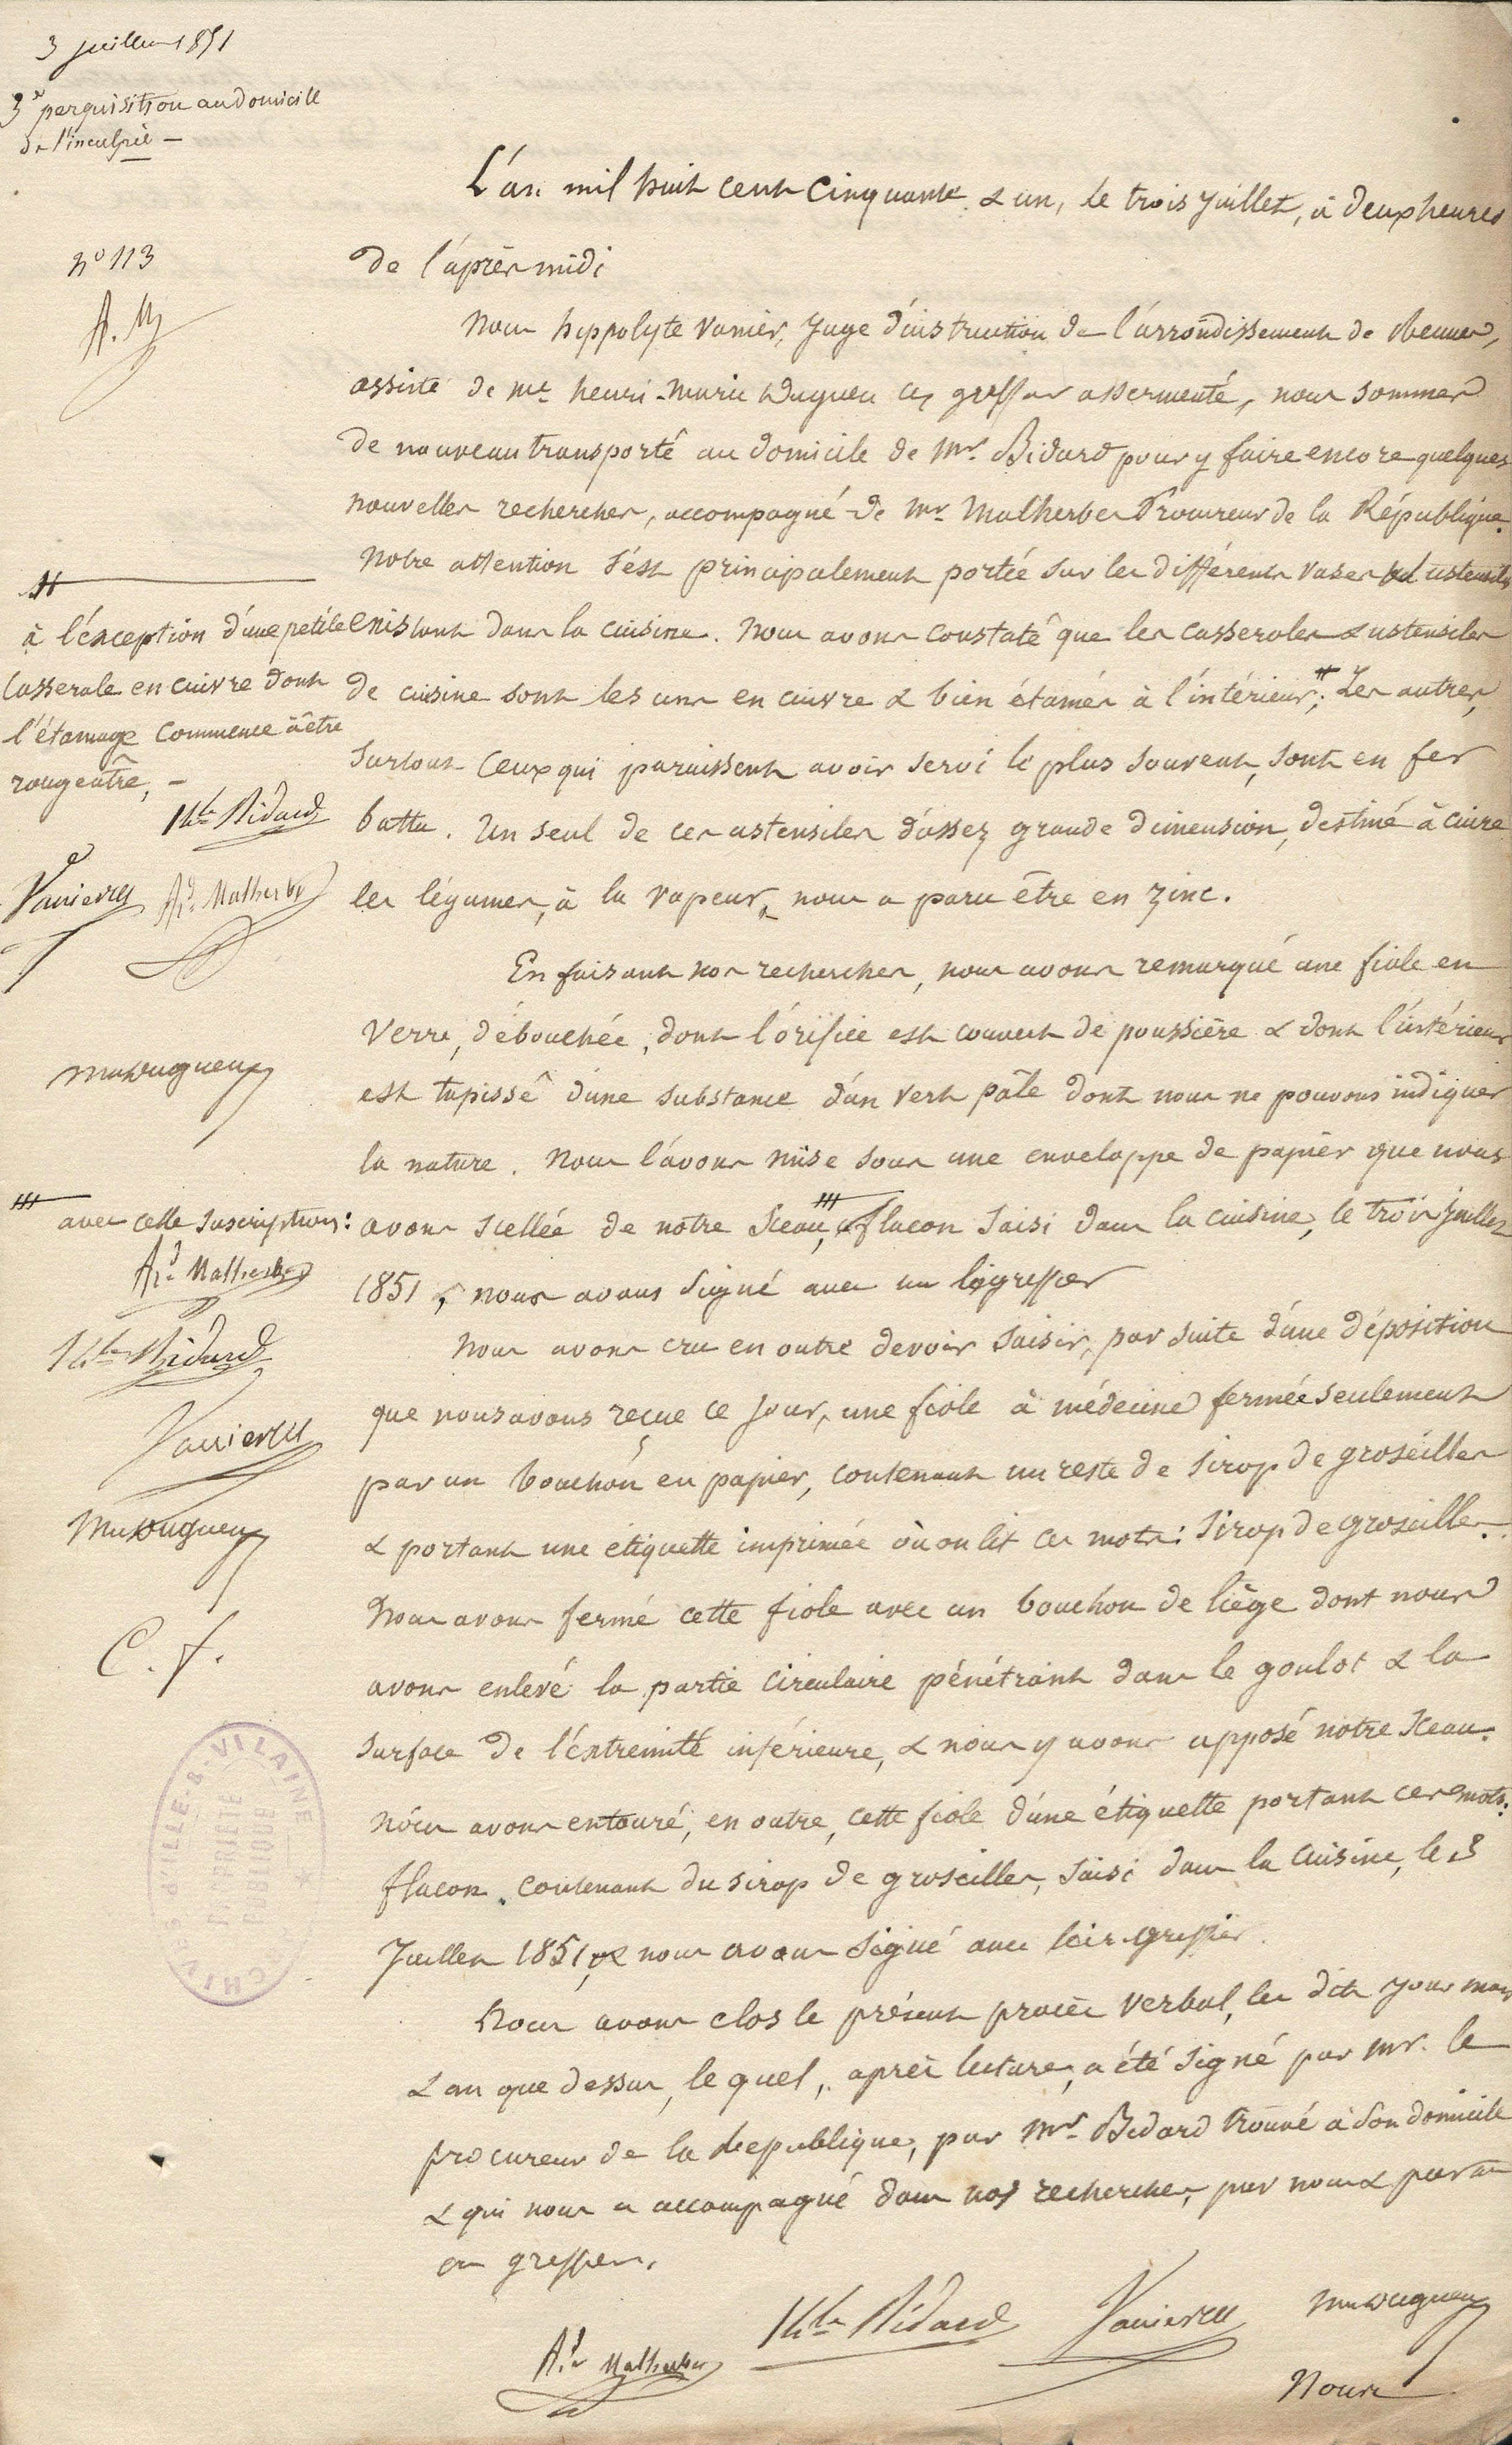 3 juillet 1851
3e perquisition au domicile
de l'inculpée –
L'an mil huit cent cinquante & un, le trois juillet, à deux heures
de l'après midi
n° 113
Nous hippolyte Vannier, juge d'instruction de l'arrondissement de Rennes,
assisté de me henri-marie comis greffier assermenté, nous sommes
de nouveau transporté au domicile de Mr. Bidard pour y faire encore quelques
nouvelles recherches, accompagné de Mr Malherbe Procureur de la République.
Notre attention s'est principalement portée sur les différents vases ustensiles
existant dans la cuisine. Nous avons constaté que les casseroles & ustensiles
de cuisine sont les uns en cuivre & bien étamés à l'intérieur #; Les autres,
surtout ceux qui paraissent avoir servi le plus souvent, sont en fer
battu. Un seul de ces ustensiles d'assez grande dimension, destiné à cuire
les légumes, à la vapeur, nous a paru être en zinc.
#
à l'exception d'une petite
casserole en cuivre dont
l'étamage commence à être
rougeâtre, –
Bidard
Vannier A. Malherbe
En faisant nos recherches, nous avons remarqué une fiole en
verre, débouchée, dont l'orifice est couvert de poussière & dont l'intérieur
est tapissé d'une substance d'un vert pâle dont nous ne pouvons indiquer
la nature. Nous l'avons mise sous une enveloppe de papier que nous
avons scellée de notre sceau, flacon saisi dans la cuisine, le trois juillet
1851, nous avons signé avec un greffier
avec cette suscription:
A. Malherbe
Bidard
Vannier
Nous avons cru en outre devoir saisir, par suite d'une déposition
que nous avons reçue ce jour, une fiole à médecine fermée seulement
par un bouchon en papier, contenant un reste de sirop de groseilles
& portant une étiquette imprimée où on lit ces mots: Sirop de groseilles.
Nous avons fermé cette fiole avec un bouchon de liège dont nous
avons enlevé la partie circulaire pénétrant dans le goulot & la
surface de l'extremité inférieure, & nous y avons apposé notre sceau.
Nous avons entouré, en outre, cette fiole d'une étiquette portant ces mots:
flacon contenant du sirop de groseilles, saisi dans la cuisine, le 3
Juillet 1851, & nous avons signé avec greffier.
C. f.
ARCHIVES D'ILLE-&-VILAINE
PROPRIÉTÉ
PUBLIQUE
Nous avons clos le présent procès verbal, les dits jour mois
& an que dessus, le quel, après lecture, a été signé par Mr. le
procureur de la République, par Mr. Bidard trouvé à son domicile
& qui nous a accompagné dans nos recherches, par nous & par
greffier.
A. Malherbe Bidard Vannier
Nous